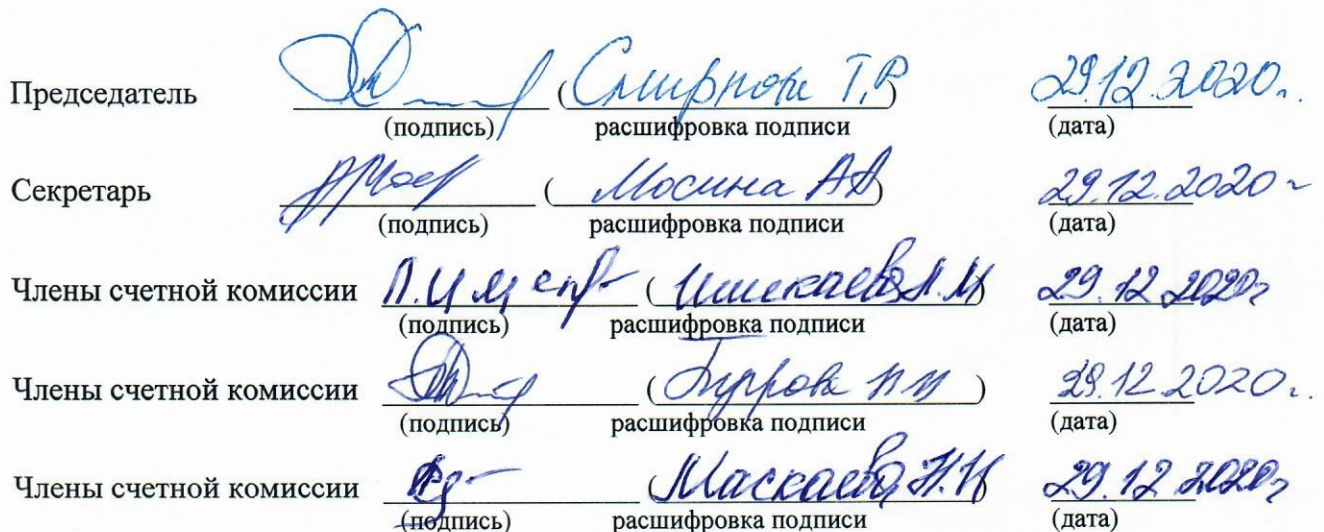 Председатель (Смирнова Т.Р) 29.12.2020г.
(подпись) расшифровка подписи (дата)
Секретарь (Мосина АА) 29.12.2020г
(подпись) расшифровка подписи (дата)
Члены счетной комиссии (Шишкаева Л.М) 29.12.2020г
(подпись) расшифровка подписи (дата)
Члены счетной комиссии ( ) 29.12.2020г.
(подпись) расшифровка подписи (дата)
Члены счетной комиссии (Маскаева Н.И) 29.12.2020г
(подпись) расшифровка подписи (дата)